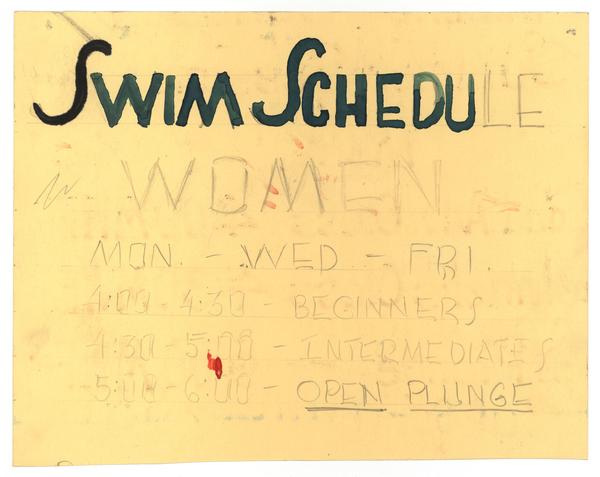 SWIM SCHEDULE
WOMEN
MON. - WED - FRI.
4:00 - 4:30 - BEGINNERS
4:30 - 5:00 - INTERMEDIATES
5:00 - 6:00 - OPEN PLUNGE